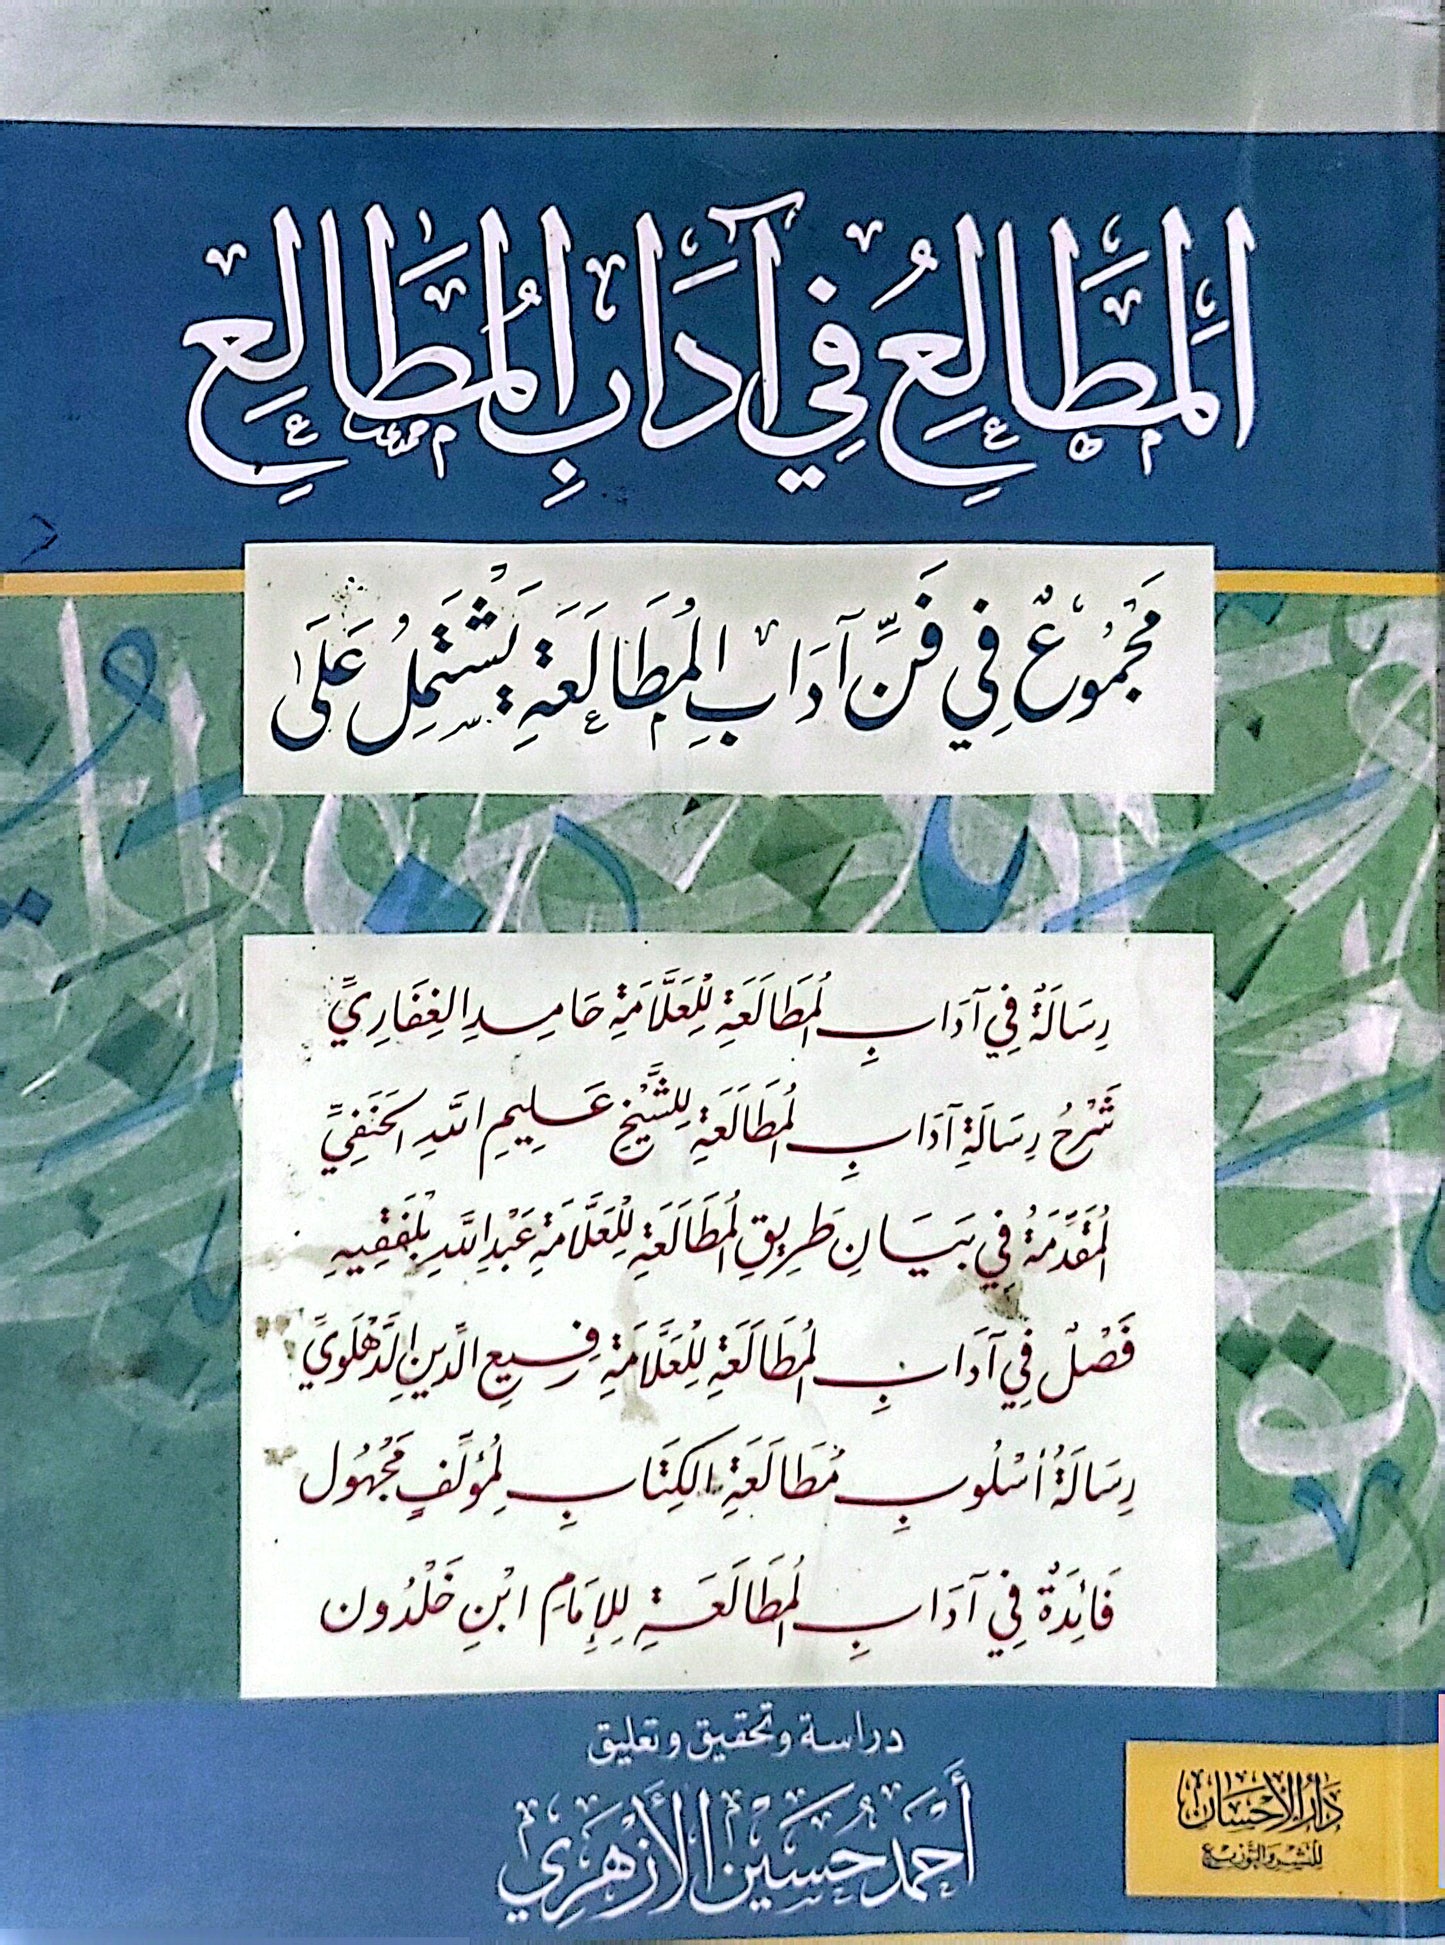 المَطَالِعُ فِي آدَابِ المُطَالِعِ
مَجْمُوعٌ فِي فَنِّ آدَابِ المُطَالَعَةِ يَشْتَمِلُ عَلَى
رِسَالَةٌ فِي آدَابِ المُطَالَعَةِ لِلْعَلَّامَةِ حَامِدِ الغِفَارِيِّ
شَرْحُ رِسَالَةِ آدَابِ المُطَالَعَةِ لِلشَّيْخِ عَلِيمِ اللَّهِ الحَنَفِيِّ
المُقَدِّمَةُ فِي بَيَانِ طَرِيقِ المُطَالَعَةِ لِلْعَلَّامَةِ عَبْدِ اللَّهِ بَلْفَقِيهِ
فَصْلٌ فِي آدَابِ المُطَالَعَةِ لِلْعَلَّامَةِ رَفِيعِ الدِّينِ الدِّهْلَوِيِّ
رِسَالَةُ أُسْلُوبِ مُطَالَعَةِ الكِتَابِ لِمُؤَلِّفٍ مَجْهُول
فَائِدَةٌ فِي آدَابِ المُطَالَعَةِ لِلإِمَامِ ابْنِ خَلْدُون
دراسة وتحقيق وتعليق
أَحْمَد حُسَيْن الأَزْهَرِي
دَارُ الإِحْسَان
للنشر والتوزيع